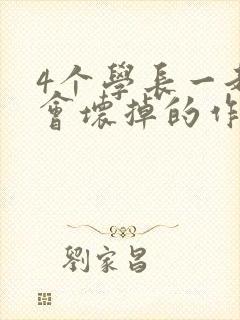 4个學長一
會壞掉的作
劉家昌